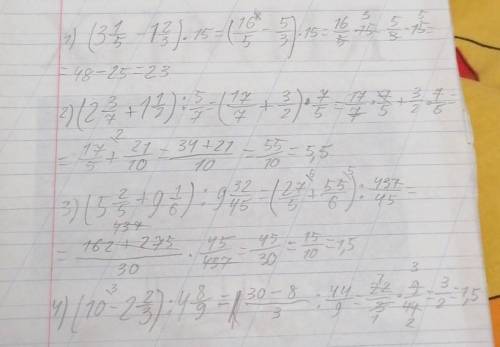 1) (3 1/5 - 1 2/3) · 15 = (16/5 - 5/3) · 15 = 16/5 · 15 - 5/3 · 15 =
= 48 - 25 = 23
2) (2 3/7 + 1 1/2) : 5/7 = (17/7 + 3/2) · 7/5 = 17/7 · 7/5 + 3/2 · 7/5 =
= 17/5 + 21/10 = 34 + 21/10 = 55/10 = 5,5
3) (5 2/5 + 9 1/6) : 9 32/45 = (27/5 + 55/6) : 437/45 =
= 162 + 275/30 · 45/437 = 45/30 = 15/10 = 1,5
4) (10 - 2 2/3) : 4 8/9 = (30 - 8/3 : 44/9 = 22/3 · 9/44 = 3/2 = 1,5